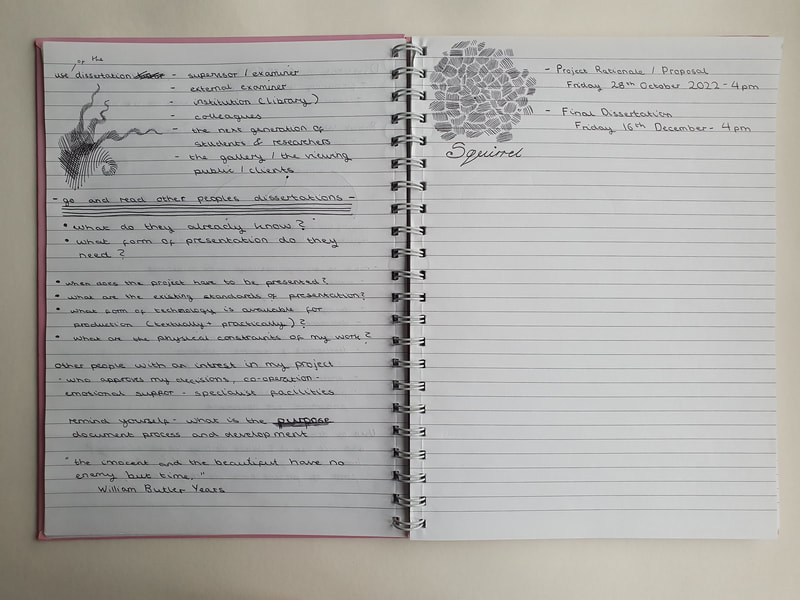 of the
use / dissertation - supervisor / examiner
- external examiner
- institution (library)
- colleagues
- the next generation of
students & researchers
- the gallery / the viewing
public / clients
- go and read other peoples dissertations -
• what do they already know?
• what form of presentation do they
need?
• when does the project have to be presented?
• what are the existing standards of presentation?
• what form of technology is available for
production (textually + practically)?
• what are the physical constraints of my work?
other people with an intrest in my project
· who approves my decisions, co-operation -
emotional support - specialist facilities
remind yourself - what is the purpose
document process and development
"the inocent and the beautiful have no
enemy but time,"
William Butler Yeats
- Project Rationale / Proposal
Friday 28th October 2022 - 4pm
- Final Dissertation
Friday 16th December - 4pm
Squirrel